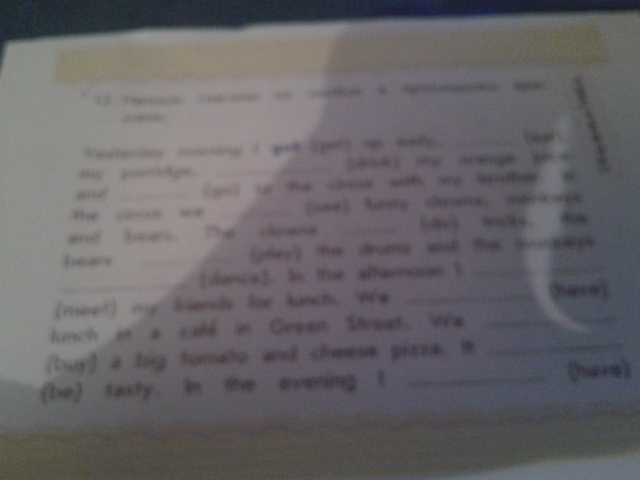 12.
Yesterday morning I got (get) up early, ______ (eat)
my porridge, ______ (drink) my orange juice
and ______ (go) to the circus with my brother. In
the circus we ______ (see) funny clowns, monkeys
and bears. The clowns ______ (do) tricks, the
bears ______ (play) the drums and the monkeys
______ (dance). In the afternoon I ______
(meet) my friends for lunch. We ______ (have)
lunch in a café in Green Street. We ______
(buy) a big tomato and cheese pizza. It ______
(be) tasty. In the evening I ______ (have)